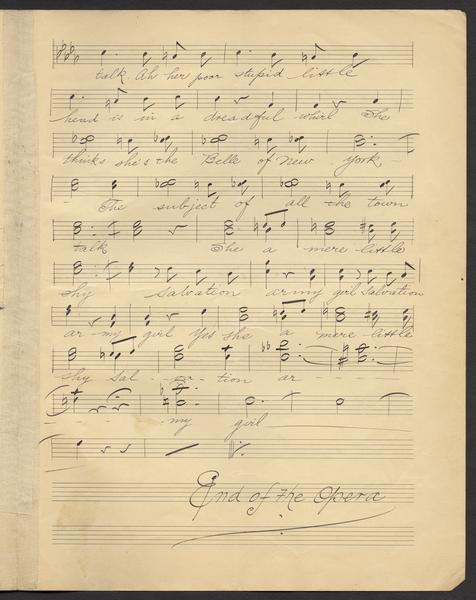 talk. Ah her poor stupid little
head is in a dreadful whirl She
thinks she's the Belle of New York -
- The subject of all the town
talk She a mere little
shy Salvation army girl Salvation
ar - my girl Yes she a mere little
shy Sal - va - tion ar - - - -
- - - - my girl
End of the Opera